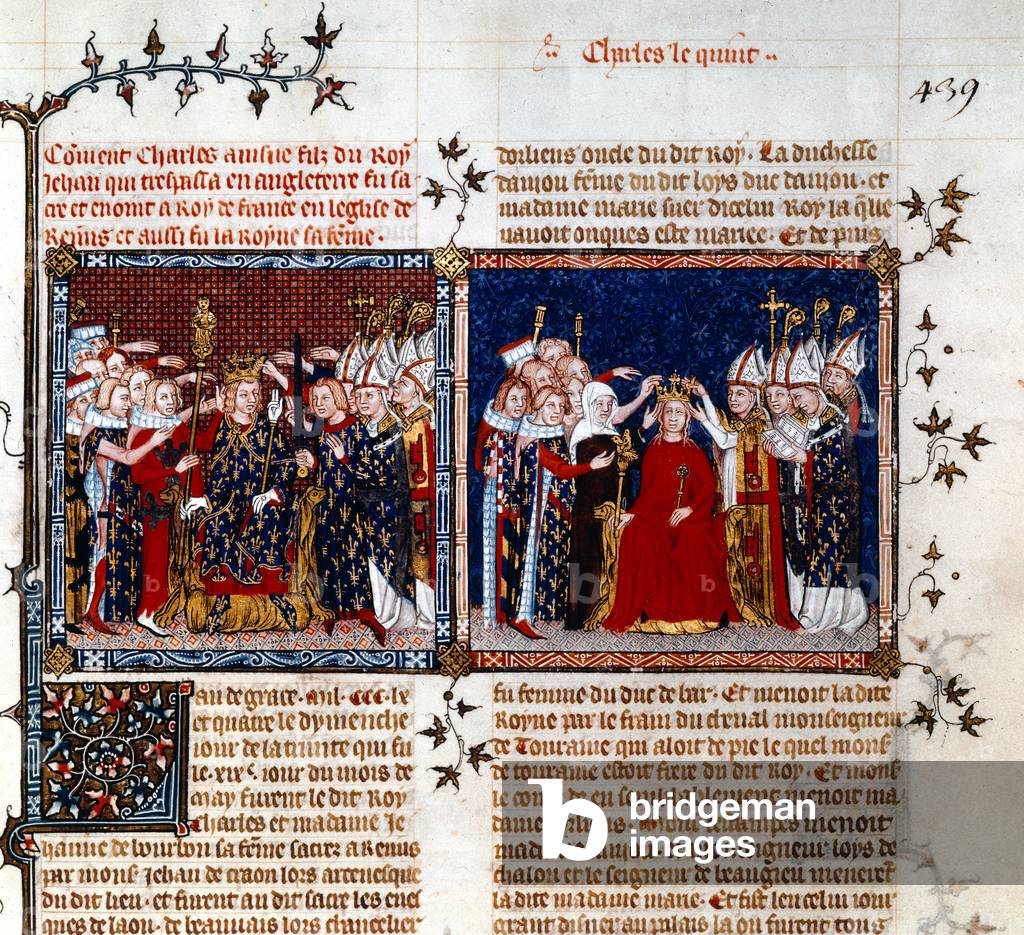 Charles le quint
439
Coment Charles ainsne filz du Roy
Jehan qui trespassa en angleterre fu sa
cre et enoint a Roy de france en leglise de
Reins et aussi fu la Royne sa feme.
L
an de grace. Mil. CCC. lx
et quatre le dymenche
iour de la trinite qui fu
le. xix^e. iour du mois de
may furent le dit Roy
Charles et madame Je
hanne de bourbon sa feme sacrez a Reins
par mons Jehan de craon lors arcevesque
du dit lieu. et furent au dit sacre les eves
ques de laon. de beauvais lors chancelier
dorliens oncle du dit Roy. La duchesse
daniou feme du dit loys duc daniou. et
madame marie suer dicelui Roy la qlle
navoit onques este mariee. Et de puis
fu femme du duc de bar. Et menoit la dite
Royne par le frain du cheval monseigneur
de Touraine qui aloit de pie le quel mons
de touraine estoit frere du dit Roy. Et mons
le conte de eu semblablement menoit ma
dame
menoit
mad loys de
chalon et le seigneur de beaugieu menerent
la dite madame marie. Et fist len celui iour
grant disner au palais la ou furent tous
bridgeman
images